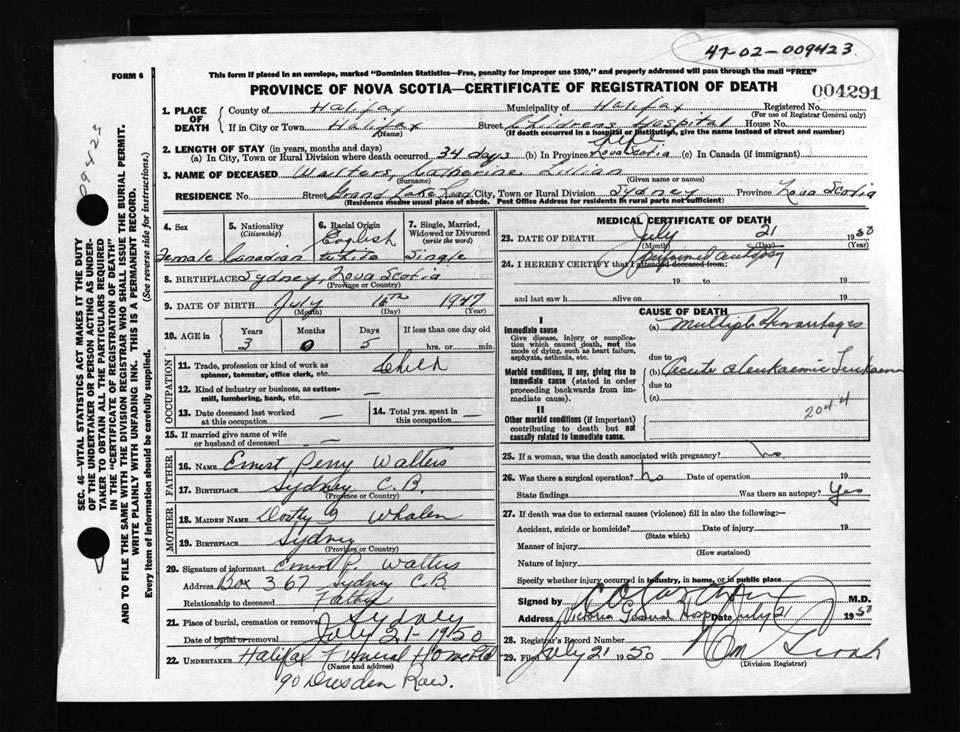 47-02-009423
FORM 6
This form if placed in an envelope, marked "Dominion Statistics—Free, penalty for improper use $300," and properly addressed will pass through the mail "FREE"
PROVINCE OF NOVA SCOTIA—CERTIFICATE OF REGISTRATION OF DEATH
004291
1. PLACE OF DEATH
County of Halifax Municipality of Halifax Registered No.
(For use of Registrar General only)
If in City or Town Halifax Street Childrens Hospital House No.
(Name) (If death occurred in a hospital or institution, give the name instead of street and number)
2. LENGTH OF STAY (in years, months and days)
(a) In City, Town or Rural Division where death occurred 34 days (b) In Province Nova Scotia (c) In Canada (if immigrant)
3. NAME OF DECEASED Walters Catherine Lillian
(Surname) (Given name or names)
RESIDENCE No. Street Grand Lake Road City, Town or Rural Division Sydney Province Nova Scotia
(Residence means usual place of abode. Post Office Address for residents in rural parts not sufficient)
4. Sex
Female
5. Nationality
(Citizenship)
Canadian
6. Racial Origin
English
White
7. Single, Married, Widowed or Divorced
(write the word)
Single
8. BIRTHPLACE Sydney, Nova Scotia
(Province or Country)
9. DATE OF BIRTH July 16th 1947
(Month) (Day) (Year)
10. AGE in Years Months Days If less than one day old
3 0 5 hrs. or min.
OCCUPATION
11. Trade, profession or kind of work as spinner, teamster, office clerk, etc. Child
12. Kind of industry or business, as cotton-mill, lumbering, bank, etc. —
13. Date deceased last worked at this occupation —
14. Total yrs. spent in this occupation —
15. If married give name of wife or husband of deceased —
FATHER
16. NAME Ernest Perry Walters
17. BIRTHPLACE Sydney C.B.
(Province or Country)
MOTHER
18. MAIDEN NAME Whalen
19. BIRTHPLACE Sydney
(Province or Country)
20. Signature of informant Ernest P. Walters
Address Box 367 Sydney C.B
Relationship to deceased Father
21. Place of burial, cremation or removal Sydney
Date of burial or removal July 21-1950
22. UNDERTAKER Halifax Funeral Home Ltd
(Name and address)
90 Dresden Row.
MEDICAL CERTIFICATE OF DEATH
23. DATE OF DEATH July 21 1950
(Month) (Day) (Year)
24. I HEREBY CERTIFY that I attended deceased from:
performed autopsy
19 to 19
and last saw h alive on 19
CAUSE OF DEATH
I
Immediate cause
Give disease, injury or complication which caused death, not the mode of dying, such as heart failure, asphyxia, asthenia, etc.
(a) Multiple Hemorrhages
due to
Morbid conditions, if any, giving rise to immediate cause (stated in order proceeding backwards from immediate cause).
(b) Acute aleukaemic Leukaemia
due to
(c)
2044
II
Other morbid conditions (if important) contributing to death but not causally related to immediate cause.
25. If a woman, was the death associated with pregnancy? no
26. Was there a surgical operation? no Date of operation 19
State findings Was there an autopsy? Yes
27. If death was due to external causes (violence) fill in also the following:—
Accident, suicide or homicide? Date of injury 19
(State which)
Manner of injury
(How sustained)
Nature of injury
Specify whether injury occurred in industry, in home, or in public place
Signed by M.D.
Address Victoria General Hosp Date July 21 1950
28. Registrar's Record Number
29. Filed July 21 1950
(Division Registrar)
SEC. 46—VITAL STATISTICS ACT MAKES IT THE DUTY OF THE UNDERTAKER OR PERSON ACTING AS UNDERTAKER TO OBTAIN ALL THE PARTICULARS REQUIRED IN THE "CERTIFICATE OF REGISTRATION OF DEATH"
AND TO FILE THE SAME WITH THE DIVISION REGISTRAR WHO SHALL ISSUE THE BURIAL PERMIT.
WRITE PLAINLY WITH UNFADING INK. THIS IS A PERMANENT RECORD.
Every item of information should be carefully supplied. (See reverse side for instructions.)